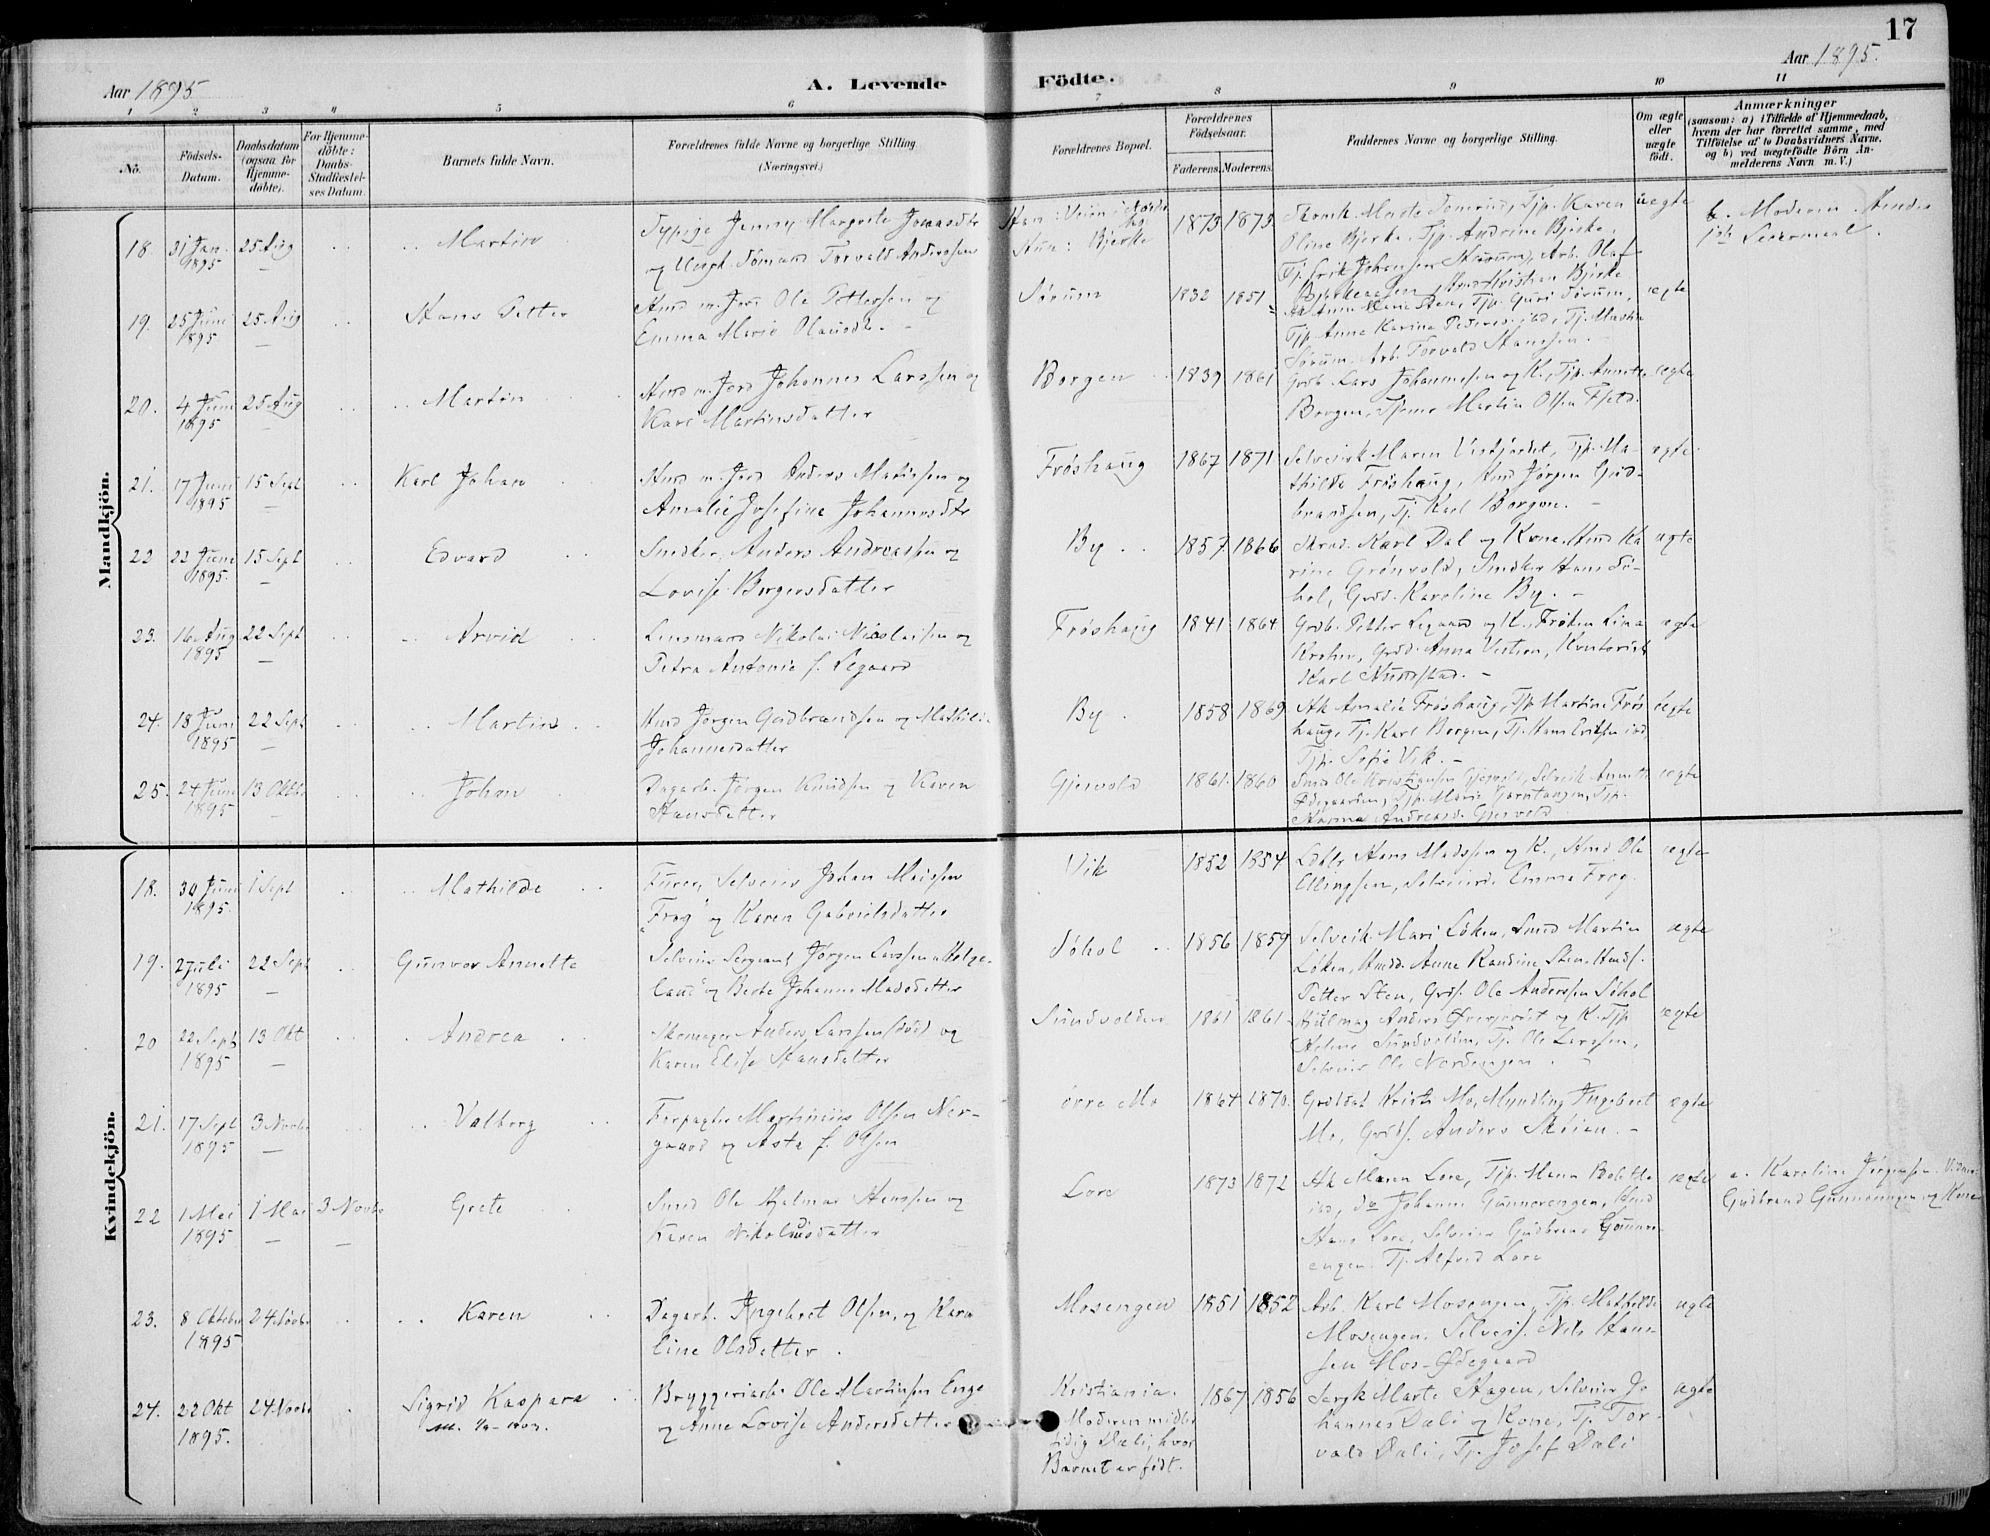 17
Aar 1895
A. Levende Födte.
Aar 1895.
1 2 3 4 5 6 7 8 9 10 11
No.
Födsels-Datum.
Daabsdatum (ogsaa for Hjemme-döbte).
For Hjemme-döbte: Daabs-Stadfæstel-ses Datum.
Barnets fulde Navn.
Forældrenes fulde Navne og borgerlige Stilling (Næringsvei.)
Forældrenes Bopæl.
Forældrenes Födselsaar.
Faderens. Moderens.
Faddernes Navne og borgerlige Stilling.
Om ægte eller uægte födt.
Anmærkninger
(saasom: a) i Tilfælde af Hjemmedaab,
hvem der har forrettet samme, med
Tilföielse af to Daabsvidners Navne.
og b) ved uægtefödte Börn An-
melderens Navn m. V.)
Mandkjön.
18 31 Jan. 1895 25 Aug Martin
Tjpige Jenny Margrete Jonasdtr
og Ungk. Tömand Torvald Anderssen
Hun: Bjerke
1873 1873
Oline Bjerke, Tjp. Andrine Bjerke,
Tj. Erik Johansen, Arb. Olaf
uægte
b. Moderen.
19. 25 Juni 1895 25 Aug Hans Petter
Hmd m. Jord Ole Pettersen og
Emma Marie Olausdtr.
Sörum 1832 1851
Tjp. Guri Sörum,
Tjp Anne Karine Pedersen
Sörum, Arb. Torvald Hanssen.
ægte
20. 4 Juni 1895 25 Aug Martin
Hmd m. Jord Johannes Larssen og
Kari Martinsdatter
Borgen 1839 1861
Grdb. Lars Johannesen og K., Tjp. Annette
Borgen, Martin Olsen Fjeld.
ægte
21. 17 Juni 1895 15 Sept Karl Johan
Hmd m. Jord Anders Mathissen og
Amalie Josefine Johannesdtr
Fröshaug 1867 1871
Selveierk. Maren Vestjordet, Tjp. Ma-
thilde Fröshaug, Hmd Jörgen Gud-
brandsen, Tj. Karl Borgen.
ægte
22 22 Juni 1895. 15 Sept Edvard
Snedker Anders Andreassen og
Lovise Borgersdatter
By 1857 1866
Karl Dal og Kone, Hmd Ka
rine Grönvold, Snedker Hans Sö-
hol, Grdd. Karoline By.
ægte
23. 16 Aug 1895 22 Sept Arvid
Lensmand Nikolai Nicolaisen og
Petra Antonie f. Legaard
Fröshaug 1841 1864
Grdb. Petter Legaard og K., Fröken Lina
Anna Vestern, Kontorist
Karl
ægte
24. 18 Juni 1895 22 Sept Martin
Hmd Jörgen Gudbrandsen og Mathilde
Johannesdatter
By 1858 1869
Amalie Fröshaug, Tjp Martine Frös
haug, Tj. Karl Borgen, Tj. Hans Eriksen ibd
Tjp. Sofie Vik.
ægte
25. 24 Juni 1895 13 Oktb. Johan
Dagarb. Jörgen Knudsen og Karen
Hansdatter
Gjesvold 1861 1860
Smd Ole Kristiansen Gjesvold, Selveik Annette
Ödegaarden, Tjp. Marie Tjp.
Andreasd. Gjesvold
ægte
Kvindekjön.
18. 30 Juni 1895. 1 Sept Mathilde
Furer, Selveier Johan Meiesen
"Frog" og Karen Gabrielsdatter
Vik 1852 1854
Hans Madssen og K., Hmd Ole
Ellingsen, Selveierd. Emma Frog.
ægte
19. 2 Juli 1895 22 Sept Gunvor Annette
Selveier Sergeant Jörgen Larssen "Helge-
land" og Berte Johanne Madsdatter
Söhol 1856 1859
Selveik. Mari Löken, Smed Martin
Löken, Hmdd. Anne Randine Sten, Hmds.
Petter Sten, Grds. Ole Anderssen Söhol
ægte
20 22 Sept 1895 13 Okt Andrea
Skomager Anders Larssen (död) og
Karen Elise Hansdatter
Sundvolden 1861 1861
Anders og K. Tjp
Helene Sundvolden, Tj. Ole Larssen,
Selveier Ole Nordengen.
ægte
21. 17 Sept 1895 3 Novbr Valborg
Forpagter Martinius Olsen Nor-
gaard og Asta f. Olsen
övre Mo 1864 1870.
Kristi Mo, Myndling Ingebret
Mo, Grds. Anders Sköien.
ægte
22 1 Mai 1895 1 Mai 3 Novbr Grete
Smed Ole Hjelmar Hanssen og
Karen Nikolaisdatter
Lore 1873 1872
Maren Lore, Tjp. Maren Bolette
ibd, do Johanne Gunnerengen, Smd
Hans Lore, Selveier Gudbrand Gunner-
engen, Tj. Alfred Lore
ægte
a. Karoline Jörgensen. Vidner:
Gudbrand Gunnerengen og Kone
23. 8 Oktober 1895 24 Novbr Karen
Dagarb. Ingebret Olsen, og Karo
line Olsdatter.
Mosengen 1851 1852
Arb. Karl Mosengen, Tjp. Mathilde
Mosengen. Selveis. Nils Han-
sen Mos-Ödegaard
ægte
24. 22 Okt 1895. 24 Novbr Sigrid Kaspara
Bryggeriarb. Ole Martinsen Enge
og Anne Lovise Andersdatter
Kristiania.
Moderen midler
tidig Dæli, hvor
Barnet er födt.
1867 1856
Marte Hagen, Selveier Jo
hannes Dæli og Kone, Tj. Tor-
vald Dæli, Tj. Josef Dæli
ægte